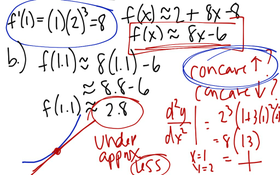 f'(1) = (1)(2)³ = 8
f(x) ≈ 2 + 8x - 8
f(x) ≈ 8x - 6
b.) f(1.1) ≈ 8(1.1) - 6
≈ 8.8 - 6
f(1.1) ≈ 2.8
under
approx
(less)
concave ↑ ?
concave ↓ ?
d²y/dx² | x=1 y=2 = 2³(1+3(1)²(2)²)
= 8(13)
= +